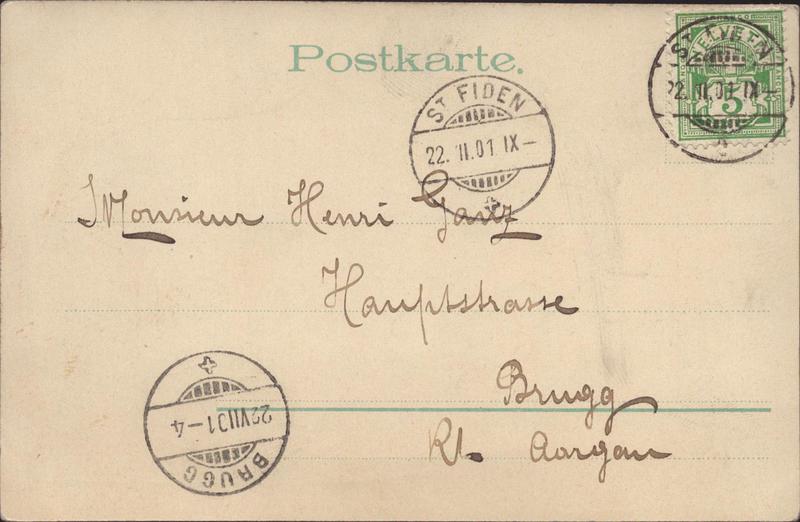 Postkarte.
HELVETIA
5
ST. FIDEN
22. VII.01 IX-
ST. FIDEN
22. VII.01 IX-
Monsieur Henri Ganz
Hauptstrasse
Brugg
Kt. Aargau
22 VII 01-4
BRUGG